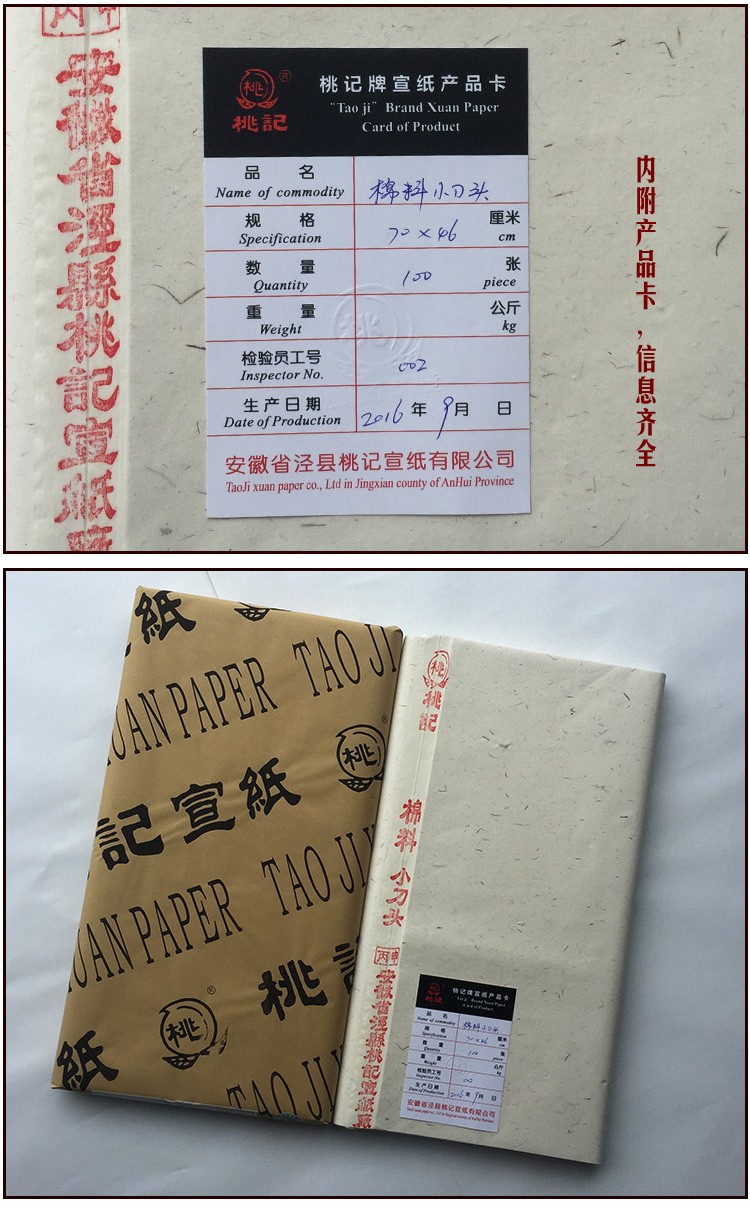 丙申
安徽省泾縣桃記宣紙厰
桃
®
桃記
桃记牌宣纸产品卡
"Tao ji" Brand Xuan Paper
Card of Product
品 名
Name of commodity
棉料小刀头
规 格
Specification
70×46
厘米
cm
数 量
Quantity
100
张
piece
重 量
Weight
公斤
kg
桃
检验员工号
Inspector No.
002
生产日期
Date of Production
2016年9月 日
安徽省泾县桃记宣纸有限公司
TaoJi xuan paper co., Ltd in Jingxian county of AnHui Province
内附产品卡，信息齐全
紙
UAN PAPER TAO JI
桃
®
記宣紙
UAN PAPER TAO JI
桃記
桃
®
紙
TAO JI
桃
桃記
棉料 小刀头
丙申
安徽省泾縣桃記宣紙厰
桃記
桃记牌宣纸产品卡
"Tao ji" Brand Xuan Paper
Card of Product
品 名
Name of commodity
棉料小刀头
规 格
Specification
70×46
厘米
cm
数 量
Quantity
100
张
piece
重 量
Weight
公斤
kg
检验员工号
Inspector No.
002
生产日期
Date of Production
2016年9月 日
安徽省泾县桃记宣纸有限公司
TaoJi xuan paper co., Ltd in Jingxian county of AnHui Province